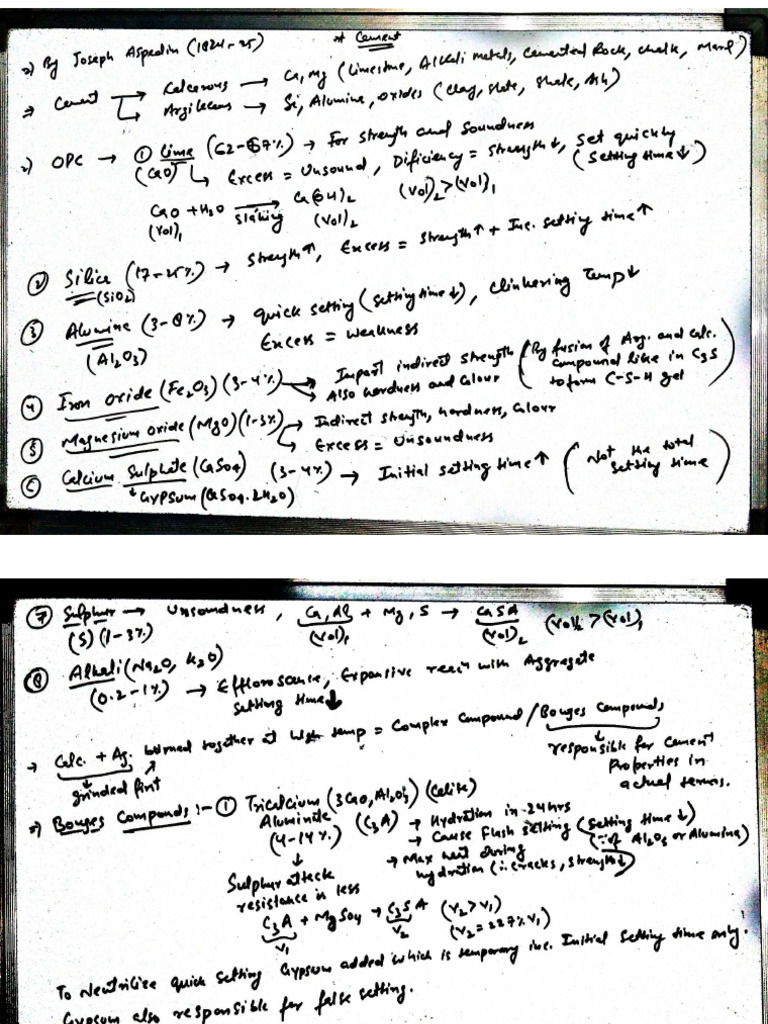 * Cement
→) By Joseph Aspedin (1824-25)
⇒ Cement → Calcerous → Ca, Mg (Limestone, Alkali metals, Cemented Rock, chalk, Marl)
→ Argillecous → Si, Alumina, oxides (clay, slate, Shale, Ash)
→) OPC → ① Lime (62-67%) → For strength and Soundness
(CaO) ↳ Excess = Unsound, Dificiency = Strength↓, Set quickly (Setting time↓)
CaO + H2O → slaking Ca(OH)2 (Vol)2 > (Vol)1
(Vol)1 (Vol)2
② Silica (17-25%) → Strength↑, Excess = Strength↑ + Inc. setting time↑
(SiO2)
③ Alumina (3-8%) → quick setting (setting time↓), clinkering Temp↓
(Al2O3) Excess = Weakness
④ Iron oxide (Fe2O3) (3-4%) → Impart indirect strength (By fusion of Arg. and calc.
→ Also hardness and Colour compound like in C3S
to form C-S-H gel)
⑤ Magnesium oxide (MgO) (1-3%) → Indirect strength, hardness, Colour
→ Excess = Unsoundness
⑥ Calcium Sulphate (CaSO4) (3-4%) → Initial setting time↑ (Not the total
↓ Gypsum (CaSO4.2H2O) setting time)
⑦ Sulphur → Unsoundness, Ca, Al + Mg, S → CaSA (Vol)2 > (Vol)1
(S) (1-3%) (Vol)1 (Vol)2
⑧ Alkali (Na2O, K2O)
(0.2-1%) → Effloroscence, Expansive reacn with Aggregate
setting time↓
→ Calc. + Ag. burned together at high temp = Complex Compound / Bouges Compounds
↓ grinded first ↓ responsible for Cement
Properties in
actual terms.
⇒) Bouges Compounds :- ① Tricalcium (3CaO, Al2O3) (Celite)
Aluminate (C3A) → Hydration in 24 hrs
(4-14%) → Cause Flash setting (Setting time↓)
(∵ of Al2O3 or Alumina)
↓ → Max heat during
Sulphur attack hydration (∴ cracks, strength↓)
resistance is less
C3A + MgSO4 → C3SA (V2 > V1)
V1 V2 (V2 = 227% V1)
To Neutrilize quick setting Gypsum added which is temporary inc. Initial Setting time only!
Gypsum also responsible for false setting.